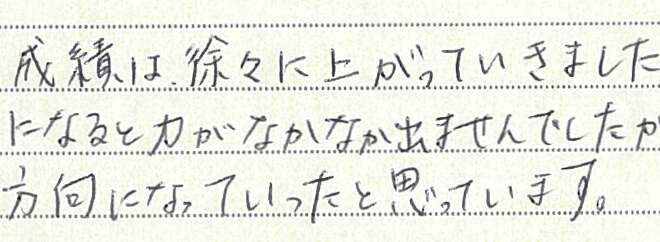 成績は、徐々に上がっていきました
になると力がなかなか出ませんでしたが
方向になっていったと思っています。